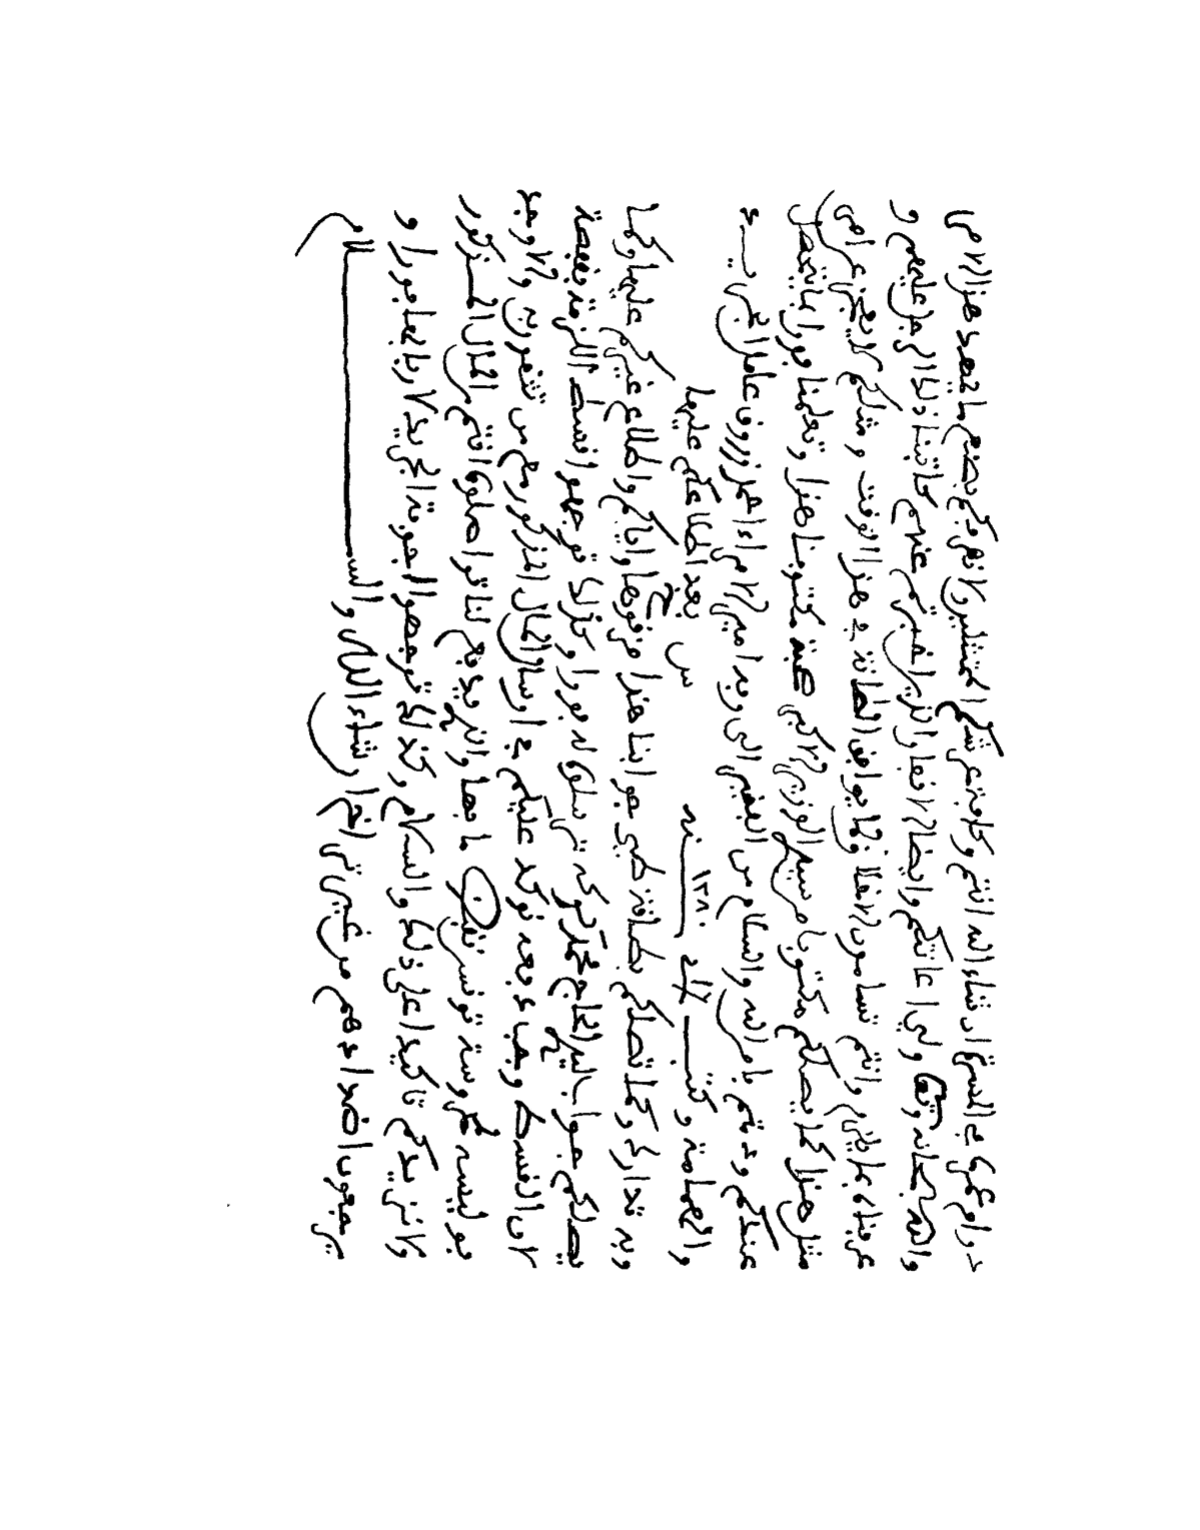 دوام عمركم في المسرة ان شاء الله انتم وكافة عرشكم الممتثلين ولا نعرفكم ما يقصد هذا الامر
والله سبحانه وتعالى ولي اعانتكم وايضا اخبرتم عنهم كاتبنا عليهم و
عرفناه بما وانتم فما يوافق في هذا الوقت ومثلكم لا يعجز عن امر
مثل هذا كما يصلكم مكتوبا من سيد الوزير الاكبر صحبة مكتوبنا هذا وتعلمنا فورا بما يتحصل
عندكم ودمتم بامن الله والسلام من الفقير الى ربه امير الامراء احمد زروق عامل
والهمامة وكتب في سنة ١٢٨٠ بعد اطلاعكم عليها
وبه تدارك وكما تصلكم بطاقة طي جوابنا هذا مزقوها واياكم واطلاع غيركم عليها وكما
يصلكم جواب السيد الحاج محمد كوكة ترسلوه له فورا وكذلك توجهوا القسط بقفصة
لان القسط وجب وبعد نوكد عليكم في ارسال المال المذكور مع من تثقون به والاوجد
بوليسه تونس نقبض ما بها والذي يدفع لنا تواصلوه انتم من المال المذكور
ولا نزيدكم تاكيدا على ذلك والسلام وكذلك توجهوا الجريد لاربابها فورا و
يرجعون اضدادهم من غير تراخ ان شاء الله والسلام